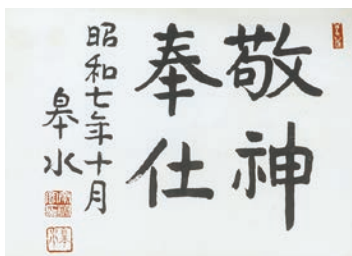 敬神
奉仕
昭和七年十月
皋水